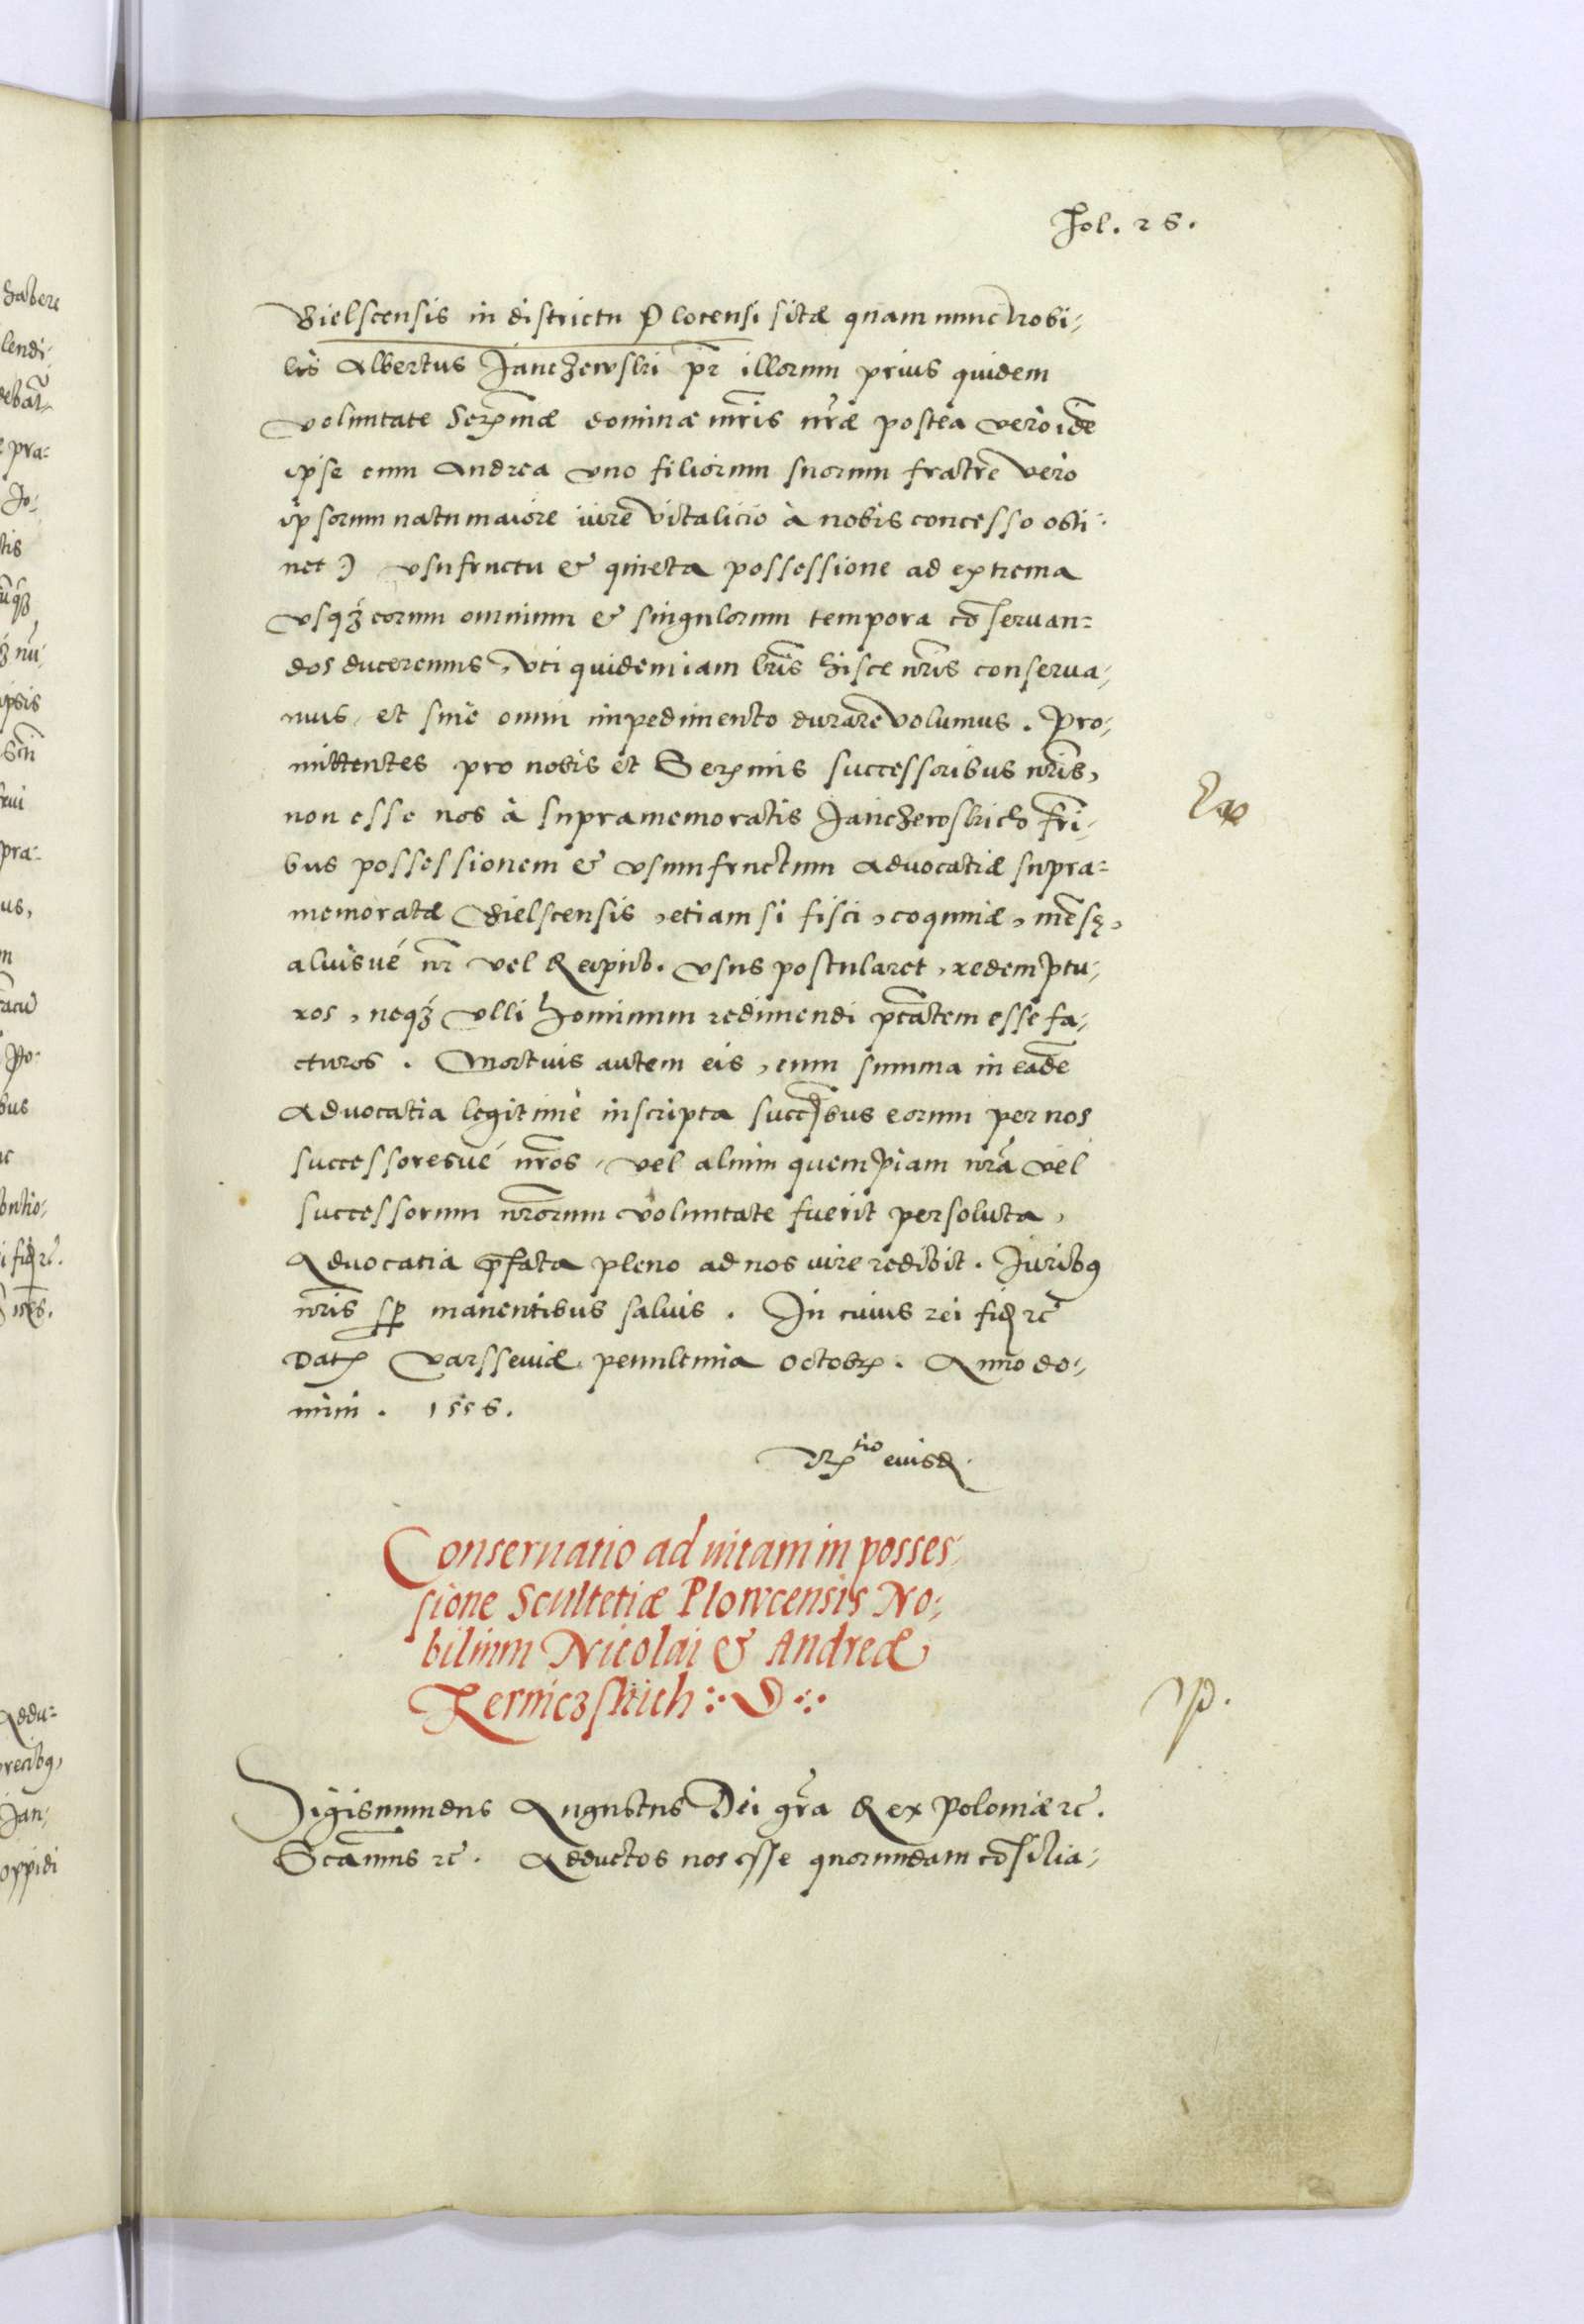 Fol. 26.
Bielscensis in districtu Plocensi sitæ quam nunc nobi-
lis Albertus Janczewski pr̃ illorum prius quidem
voluntate Serꝫmæ dominæ mr̃is nr̃æ postea vero idẽ
ipse cum Andrea vno filiorum suorum fratre vero
ipsorum natu maiore iure vitalicio à nobis concesso obti-
net) vsufructu & quieta possessione ad extrema
vsqꝫ eorum omnium & singulorum tempora cõseruan=
dos duceremus, vti quidem iam lr̃is hisce nr̃is conserua-
mus, et sine omni impedimento durare volumus. Pro-
mittentes pro nobis et Serꝫmis successoribus nr̃is,
non esse nos à supramemoratis Janczewskich fri-
bus possessionem & vsumfructum aduocatiæ supra=
memoratæ Bielscensis, etiam si fisci, coquinæ, mẽsę,
aliusué nr̃ vel Reipub. vsus postularet, redemptu-
ros, neqꝫ vlli hominum redimendi ptãtem esse fa-
cturos. Mortuis autem eis, cum summa in eadẽ
Aduocatia legitimè inscripta succ̃sbus eorum per nos
successoresué nr̃os, vel alium quempiam nr̃a vel
successorum nr̃orum voluntate fuerit persoluta,
Aduocatia p̃fata pleno ad nos iure redibit. Juribꝰ
nr̃is sꝑ manentibus saluis. In cuius rei fiđ ꝛc̃
Datꝫ Varsseuiæ penultima Octobrꝫ. Anno do-
mini. 1556.
Rꝫtio eiusđ.
Conseruatio ad uitam in posses-
sione Scultetiæ Plowcensis No-
bilium Nicolai & Andreæ
Zerniczskich
Sigismundus Augustus Dei gr̃a Rex Poloniæ ꝛc̃.
Sc̃amus ꝛc̃. Adductos nos esse quorundam cõsilia-